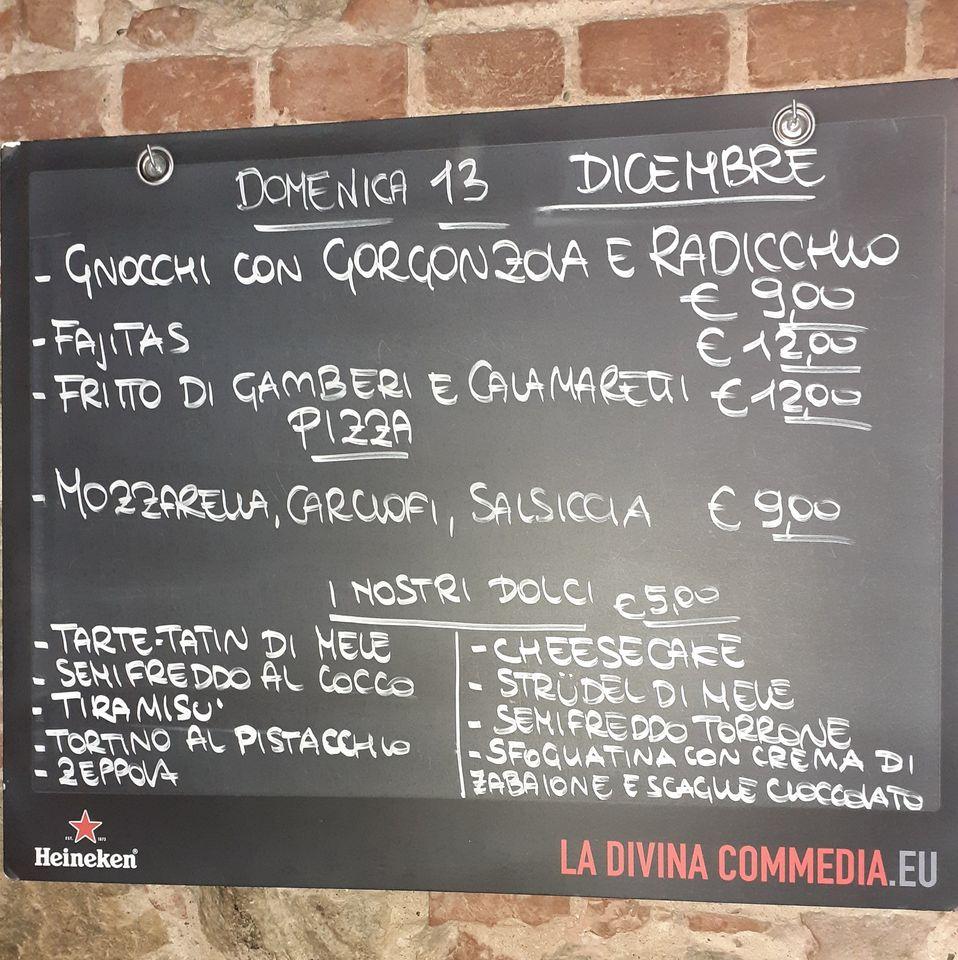 DOMENICA 13 DICEMBRE
- GNOCCHI CON GORGONZOLA E RADICCHIO
€ 9,00
- FAJITAS € 12,00
- FRITTO DI GAMBERI E CALAMARETTI € 12,00
PIZZA
- MOZZARELLA, CARCIOFI, SALSICCIA € 9,00
I NOSTRI DOLCI € 5,00
- TARTE-TATIN DI MELE
- SEMIFREDDO AL COCCO
- TIRAMISU'
- TORTINO AL PISTACCHIO
- ZEPPOLA
- CHEESECAKE
- STRÜDEL DI MELE
- SEMIFREDDO TORRONE
- SFOGLIATINA CON CREMA DI
ZABAIONE E SCAGLIE CIOCCOLATO
EST. 1873
Heineken®
LA DIVINA COMMEDIA.EU